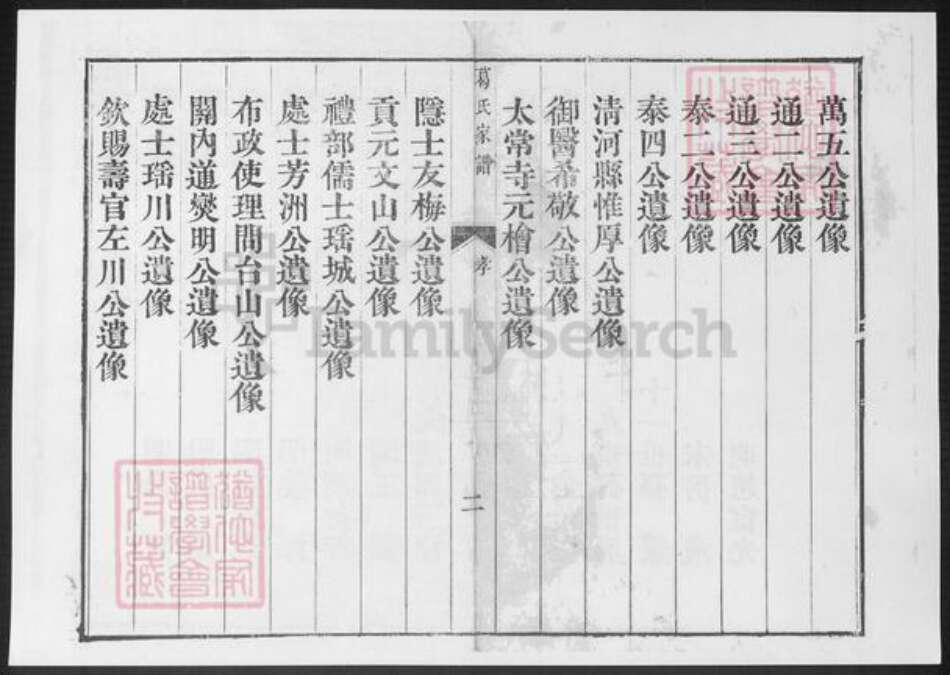 萬五公遺像
通二公遺像
通三公遺像
泰二公遺像
泰四公遺像
淸河縣惟厚公遺像
御醫希敬公遺像
太常寺元檜公遺像
葛氏家譜
序
二
隱士友梅公遺像
貢元文山公遺像
禮部儒士瑶城公遺像
處士芳洲公遺像
布政使理問台山公遺像
關內道爕明公遺像
處士瑶川公遺像
欽賜壽官左川公遺像
FamilySearch